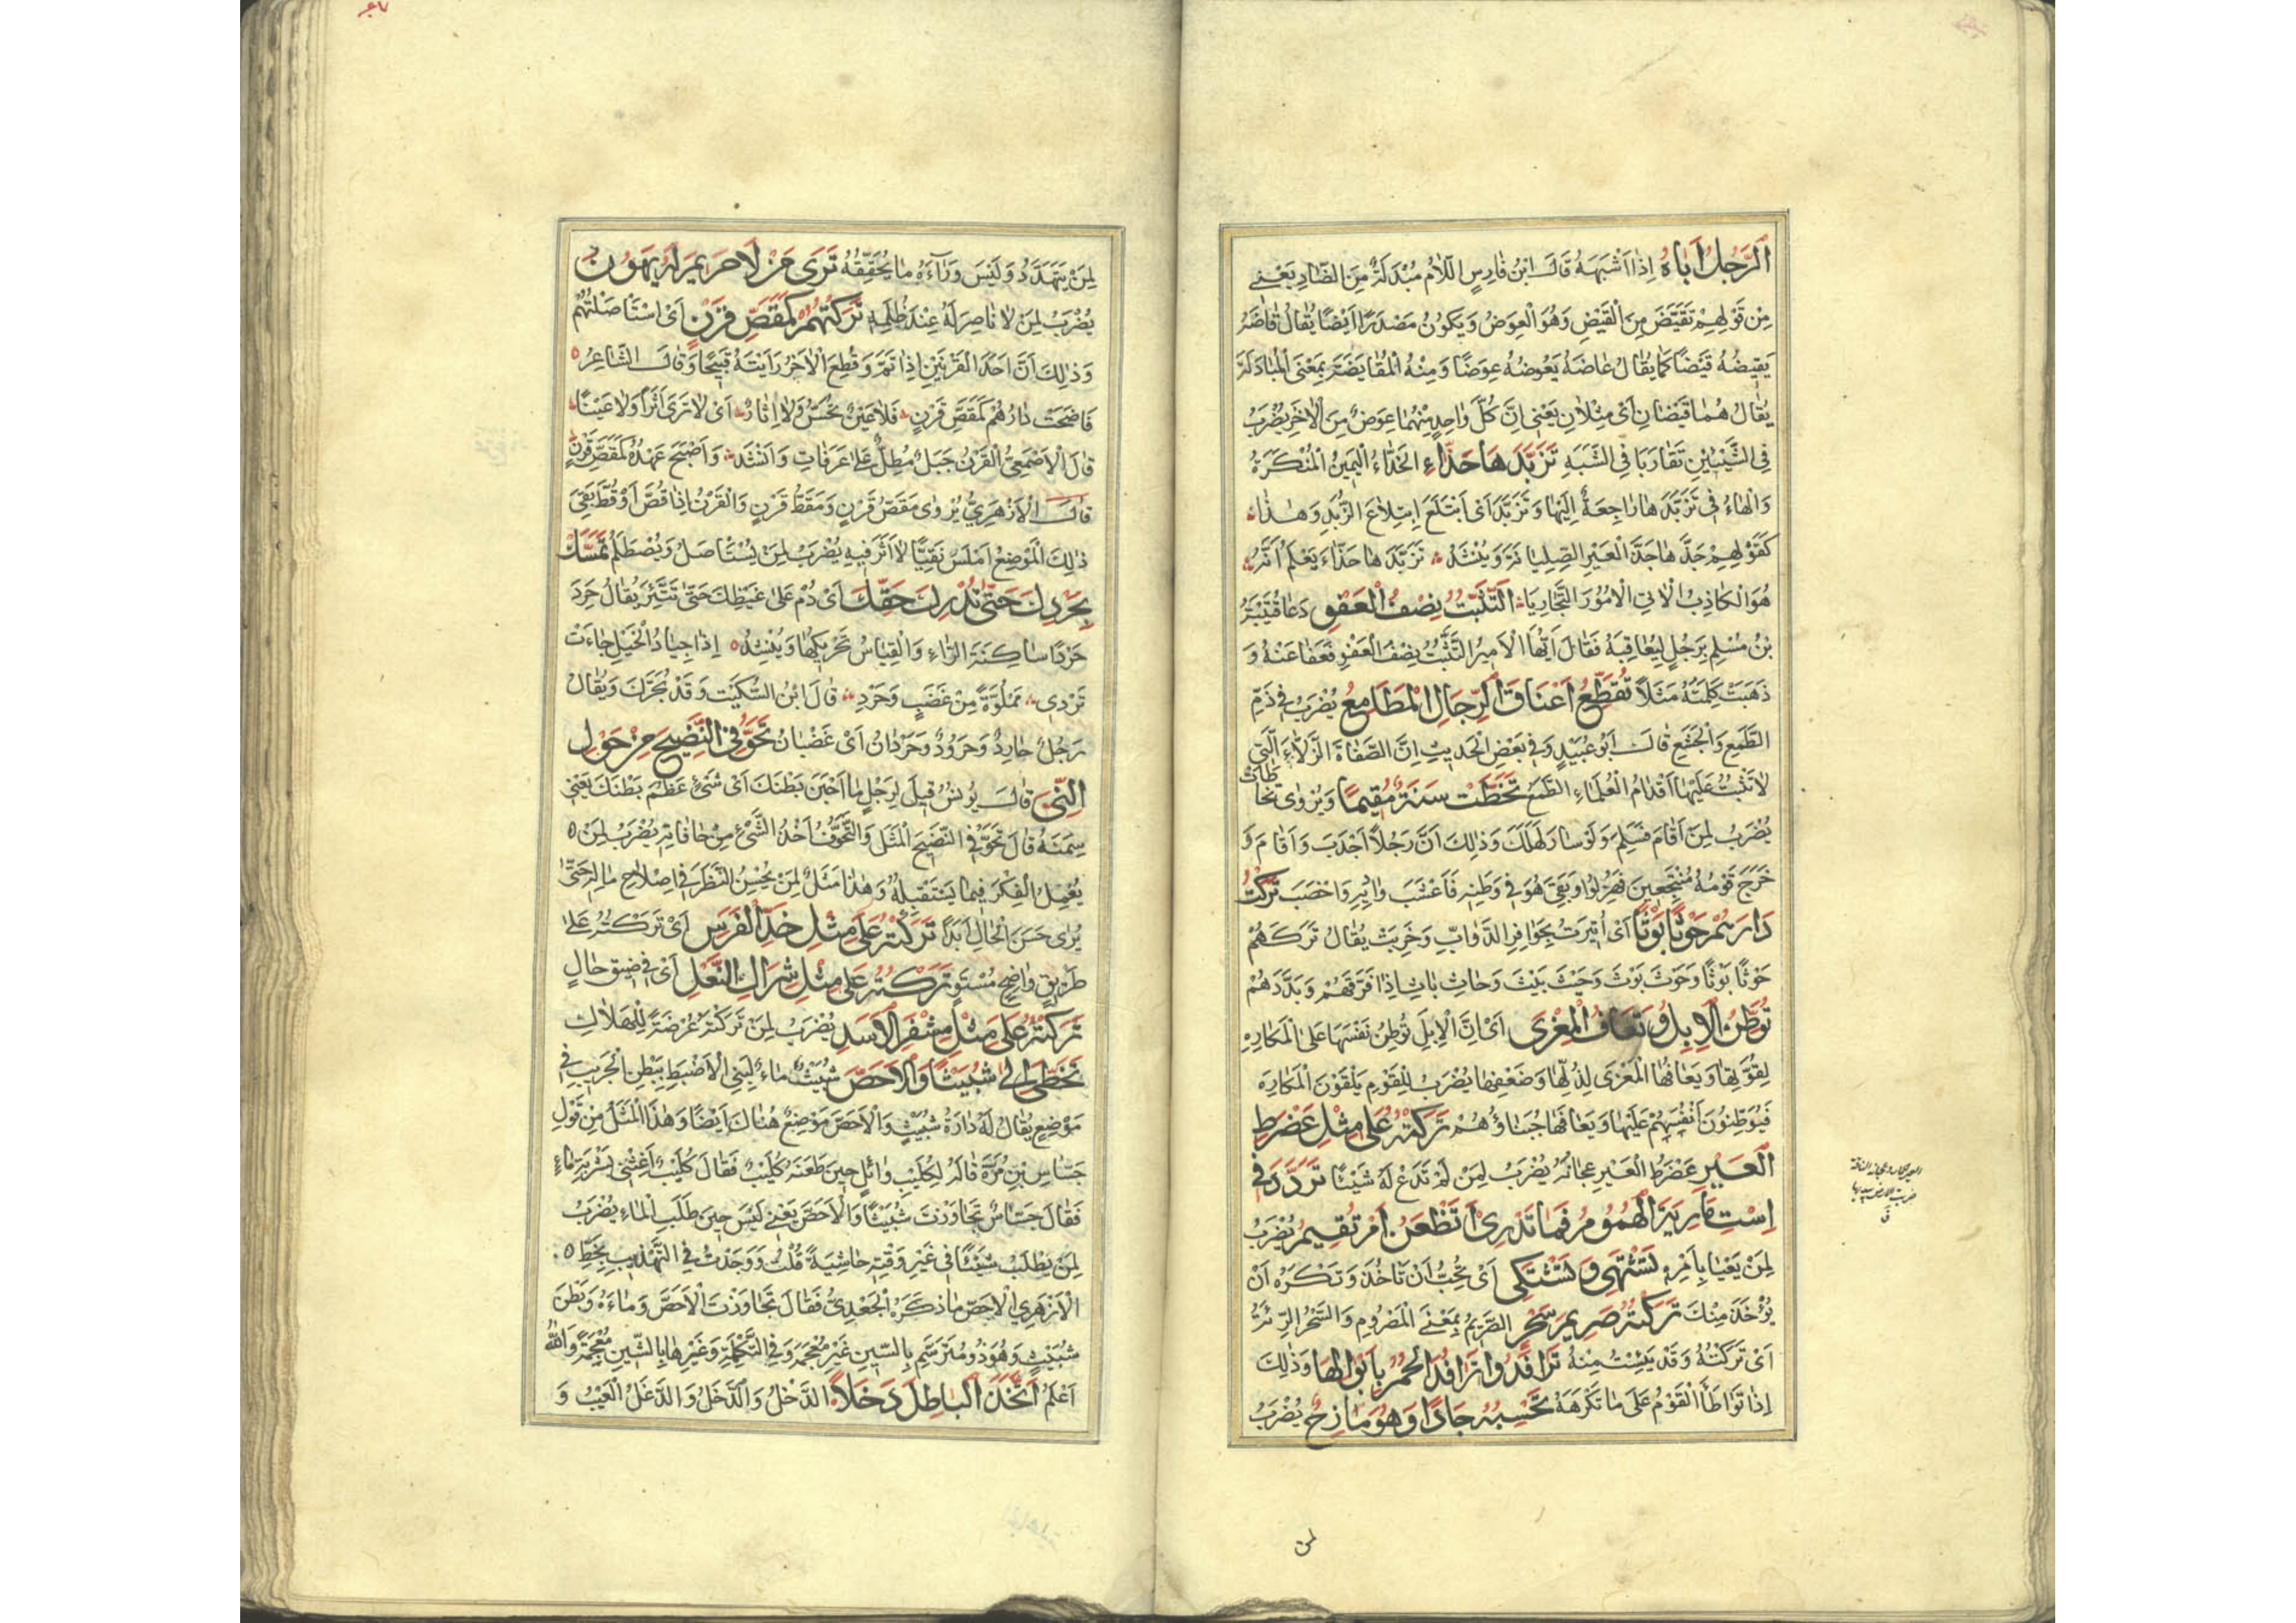 الرَّجُلُ اَبَاهُ اِذَا اَشْبَهَهُ قَالَ ابْنُ فَارِسٍ اللَّامُ مُبْدَلَةٌ مِنَ الضَّادِ يَعْنِي
مِنْ قَوْلِهِمْ تَقَيَّضَ مِنَ الْقَيْضِ وَهُوَ الْعِوَضُ وَيَكُونُ مَصْدَرًا اَيْضًا يُقَالُ قَاضَهُ
يَقِيضُهُ قَيْضًا كَمَا يُقَالُ عَاضَهُ يَعُوضُهُ عِوَضًا وَمِنْهُ الْمُقَايَضَةُ بِمَعْنَى الْمُبَادَلَةِ
يُقَالُ هُمَا قَيْضَانِ اَىْ مِثْلَانِ يَعْنِي اِنَّ كُلَّ وَاحِدٍ مِنْهُمَا عِوَضٌ مِنَ الْاٰخَرِ يُضْرَبُ
فِى الشَّيْئَيْنِ تَقَارَبَا فِى الشَّبَهِ تَزَبَّدَهَا حَذَّاءَ الحَذَّاءُ الْيَمِينُ الْمُنْكَرَةُ
وَالْهَاءُ فِى تَزَبَّدَهَا رَاجِعَةٌ اِلَيْهَا وَتَزَبَّدَ اَىْ اَبْتَلَعَ اِبْتِلَاعَ الزُّبْدِ وَهٰذَا
كَقَوْلِهِمْ جَذَّهَا جَذَّ الْعَيْرِ الصِّلِيَانَةَ وَيُنْشَدُ تَزَبَّدَهَا حَذَّاءَ يَعْلَمُ اَنَّهُ
هُوَ الْكَاذِبُ الْاٰتِي الْاُمُورَ الْبَجَارِيَا التَّثَبُّتُ نِصْفُ الْعَفْوِ دَعَا قُتَيْبَةُ
بْنُ مُسْلِمٍ بِرَجُلٍ لِيُعَاقِبَهُ فَقَالَ اَيُّهَا الْاَمِيرُ التَّثَبُّتُ نِصْفُ الْعَفْوِ فَعَفَا عَنْهُ وَ
ذَهَبَتْ كَلِمَتُهُ مَثَلًا تُقَطِّعُ اَعْنَاقَ الرِّجَالِ الْمَطَامِعُ يُضْرَبُ فِى ذَمِّ
الطَّمَعِ وَالْجَشَعِ قَالَ اَبُو عُبَيْدٍ وَفِى بَعْضِ الْحَدِيثِ اِنَّ الصَّفَاةَ الزَّلَّاءَ الَّتِي
لَا تَثْبُتُ عَلَيْهَا اَقْدَامُ الْعُلَمَاءِ الطَّمَعُ تَخَطَّتْ سَنَةٌ مُقِيمًا وَيُرْوَى تَخَاطَأَتْ
يُضْرَبُ لِمَنْ اَقَامَ فَسَلِمَ وَلَوْ سَارَ لَهَلَكَ وَذٰلِكَ اَنَّ رَجُلًا اَجْدَبَ وَاَقَامَ وَ
خَرَجَ قَوْمُهُ مُنْتَجِعِينَ فَهُزِلُوا وَبَقِيَ هُوَ فِى وَطَنِهِ فَاَعْشَبَ وَادِيهِ وَاَخْصَبَ تَرَكْتُ
دَارَهُمْ حَوْثًا بَوْثًا اَىْ اُثِيرَتْ بِحَوَافِرِ الدَّوَابِّ وَخَرِبَتْ يُقَالُ تَرَكَهُمْ
حَوْثًا بَوْثًا وَحَوْثَ بَوْثَ وَحَيْثَ بَيْثَ وَحَاثِ بَاثِ اِذَا فَرَّقَهُمْ وَبَدَّدَهُمْ
تُوَطِّنُ الْاِبِلُ وَتَعَافُ الْمِعْزَى اَىْ اِنَّ الْاِبِلَ تُوَطِّنُ نَفْسَهَا عَلَى الْمَكَارِهِ
لِقُوَّتِهَا وَيَعَافُهَا الْمِعْزَى لِذُلِّهَا وَضَعْفِهَا يُضْرَبُ لِلْقَوْمِ يَلْقَوْنَ الْمَكَارِهَ
فَيُوَطِّنُونَ اَنْفُسَهُمْ عَلَيْهَا وَيَعَافُهَا جُبَنَاؤُهُمْ تَرَكْتُهُ عَلَى مِثْلِ عَضْرَطِ
الْعَيْرِ عَضْرَطُ الْعَيْرِ عِجَانُهُ يُضْرَبُ لِمَنْ لَمْ تَدَعْ لَهُ شَيْئًا تَرَدَّدَ فِى
اِسْتِ مَارِيَةَ الْهُمُومُ فَمَا تَدْرِى اَتَظْعَنُ اَمْ تُقِيمُ يُضْرَبُ
لِمَنْ يَعْيَا بِاَمْرِهِ تَشْتَهِي وَتَشْتَكِي اَىْ تُحِبُّ اَنْ تَاْخُذَ وَتَكْرَهُ اَنْ
يُؤْخَذَ مِنْكَ تَرَكْتُهُ صَرِيمَ سَحْرٍ الصَّرِيمُ بِمَعْنَى الْمَصْرُومِ وَالسَّحْرُ الرِّئَةُ
اَىْ تَرَكْتُهُ وَقَدْ يَئِسْتُ مِنْهُ تَرَافَدُوا تَرَافُدَ الْحُمُرِ بِاَبْوَالِهَا وَذٰلِكَ
اِذَا تَوَاطَأَ الْقَوْمُ عَلَى مَا تَكْرَهُهُ تَحْسِبُهُ جَادًّا وَهُوَ مَازِحٌ يُضْرَبُ
لِمَنْ يَتَهَدَّدُ وَلَيْسَ وَرَاءَهُ مَا يُحَقِّقُهُ تَرَى مَنْ لَا حَرِيمَ لَهُ يَهُونُ
يُضْرَبُ لِمَنْ لَا نَاصِرَ لَهُ عِنْدَ ظُلْمِهِ تَرَكْتُهُمْ كَمَقَصِّ قَرْنٍ اَىْ اسْتَاْصَلْتُهُمْ
وَذٰلِكَ اَنَّ اَحَدَ الْقَرْنَيْنِ اِذَا تَمَّ وَقُطِعَ الْاٰخَرُ رَاَيْتَهُ قَبِيحًا وَقَالَ الشَّاعِرُ
فَاَضْحَتْ دَارُهُمْ كَمَقَصِّ قَرْنٍ فَلَا عَيْنٌ تُحَسُّ وَلَا اِثَارُ اَىْ لَا تَرَى اَثَرًا وَلَا عَيْنًا
قَالَ الْاَصْمَعِيُّ الْقَرْنُ جَبَلٌ مُطِلٌّ عَلَى عَرَفَاتٍ وَاَنْشَدَ وَاَصْبَحَ عَهْدُهُ كَمَقَصِّ قَرْنٍ
قَالَ الْاَزْهَرِيُّ يُرْوَى مَقَصُّ قَرْنٍ وَمَقَطُّ قَرْنٍ وَالْقَرْنُ اِذَا قُصَّ اَوْ قُطَّ بَقِيَ
ذٰلِكَ الْمَوْضِعُ اَمْلَسَ نَقِيًّا لَا اَثَرَ فِيهِ يُضْرَبُ لِمَنْ يُسْتَاْصَلُ وَيُصْطَلَمُ تَمَسَّكْ
بِحَرْدِكَ حَتَّى تُدْرِكَ حَقَّكَ اَىْ دُمْ عَلَى غَيْظِكَ حَتَّى تَثَّئِرَ يُقَالُ حَرِدَ
حَرْدًا سَاكِنَةَ الرَّاءِ وَالْقِيَاسُ تَحْرِيكُهَا وَيُنْشِدُ اِذَا جِيَادُ الْخَيْلِ جَاءَتْ
تَرْدِي مَمْلُوَّةً مِنْ غَضَبٍ وَحَرْدِ قَالَ ابْنُ السِّكِّيتِ وَقَدْ يُحَرَّكُ وَيُقَالُ
رَجُلٌ حَارِدٌ وَحَرُودٌ وَحَرْدَانُ اَىْ غَضْبَانُ تَحَوَّفِى النَّضِيجَ مِنْ حَوْلِ
النِّيِّ قَالَ يُونُسُ قِيلَ لِرَجُلٍ مَا اَحْبَنَ بَطْنَكَ اَىْ شَيْءٌ عَظَّمَ بَطْنَكَ يَعْنِي
سِمَنَهُ قَالَ تَحَوُّفِي النَّضِيجَ الْمَثَلَ وَالتَّحَوُّفُ اَخْذُ الشَّيْءِ مِنْ حَافَاتِهِ يُضْرَبُ لِمَنْ
يُعْمِلُ الْفِكْرَ فِيمَا يَسْتَقْبِلُهُ وَهٰذَا مَثَلٌ لِمَنْ يُحْسِنُ النَّظَرَ فِى اِصْلَاحِ مَالِهِ حَتَّى
يُرَى حَسَنَ الْحَالِ اَبَدًا تَرَكْتُهُ عَلَى مِثْلِ خَدِّ الْفَرَسِ اَىْ تَرَكْتُهُ عَلَى
طَرِيقٍ وَاضِحٍ مُسْتَوٍ تَرَكْتُهُ عَلَى مِثْلِ شِرَاكِ النَّعْلِ اَىْ فِى ضِيقِ حَالٍ
تَرَكْتُهُ عَلَى مِثْلِ مِشْفَرِ الْاَسَدِ يُضْرَبُ لِمَنْ تَرَكْتَهُ عُرْضَةً لِلْهَلَاكِ
تَخَطَّى اِلَىَّ شُبَيْثًا وَالْاَحَصَّ شُبَيْثٌ مَاءٌ لِبَنِي الْاَضْبَطِ بِبَطْنِ الْجَرِيبِ فِى
مَوْضِعٍ يُقَالُ لَهُ دَارَةُ شُبَيْثٍ وَالْاَحَصَّ مَوْضِعٌ هُنَاكَ اَيْضًا وَهٰذَا الْمَثَلُ مِنْ قَوْلِ
جَسَّاسِ بْنِ مُرَّةَ قَالَهُ لِكُلَيْبِ وَائِلٍ حِينَ طَعَنَهُ كُلَيْبٌ فَقَالَ كُلَيْبٌ اَغِثْنِي بِشَرْبَةِ مَاءٍ
فَقَالَ جَسَّاسٌ تَجَاوَزْتَ شُبَيْثًا وَالْاَحَصَّ يَعْنِي لَيْسَ حِينَ طَلَبِ الْمَاءِ يُضْرَبُ
لِمَنْ يَطْلُبُ شَيْئًا فِى غَيْرِ وَقْتِهِ حَاشِيَةً قُلْتُ وَوَجَدْتُ فِى التَّهْذِيبِ بِخَطِّ
الْاَزْهَرِي الْاَحَصّ مَا ذَكَرَهُ الْجَعْدِيُّ فَقَالَ تَجَاوَزْتَ الْاَحَصَّ وَمَاءَهُ وَبَطْنَ
شُبَيْثٍ وَهُوَ ذُو مُتَرَسَّمِ بِالسِّينِ غَيْرَ مُعْجَمَةٍ وَفِى التَّكْمِلَةِ وَغَيْرِهَا بِالشِّينِ مُعْجَمَةً وَاللهُ
اَعْلَمُ اتَّخَذَ الْبَاطِلَ دَخَلًا الدَّخْلُ وَالدَّخَلُ وَالدَّغَلُ الْعَيْبُ وَ